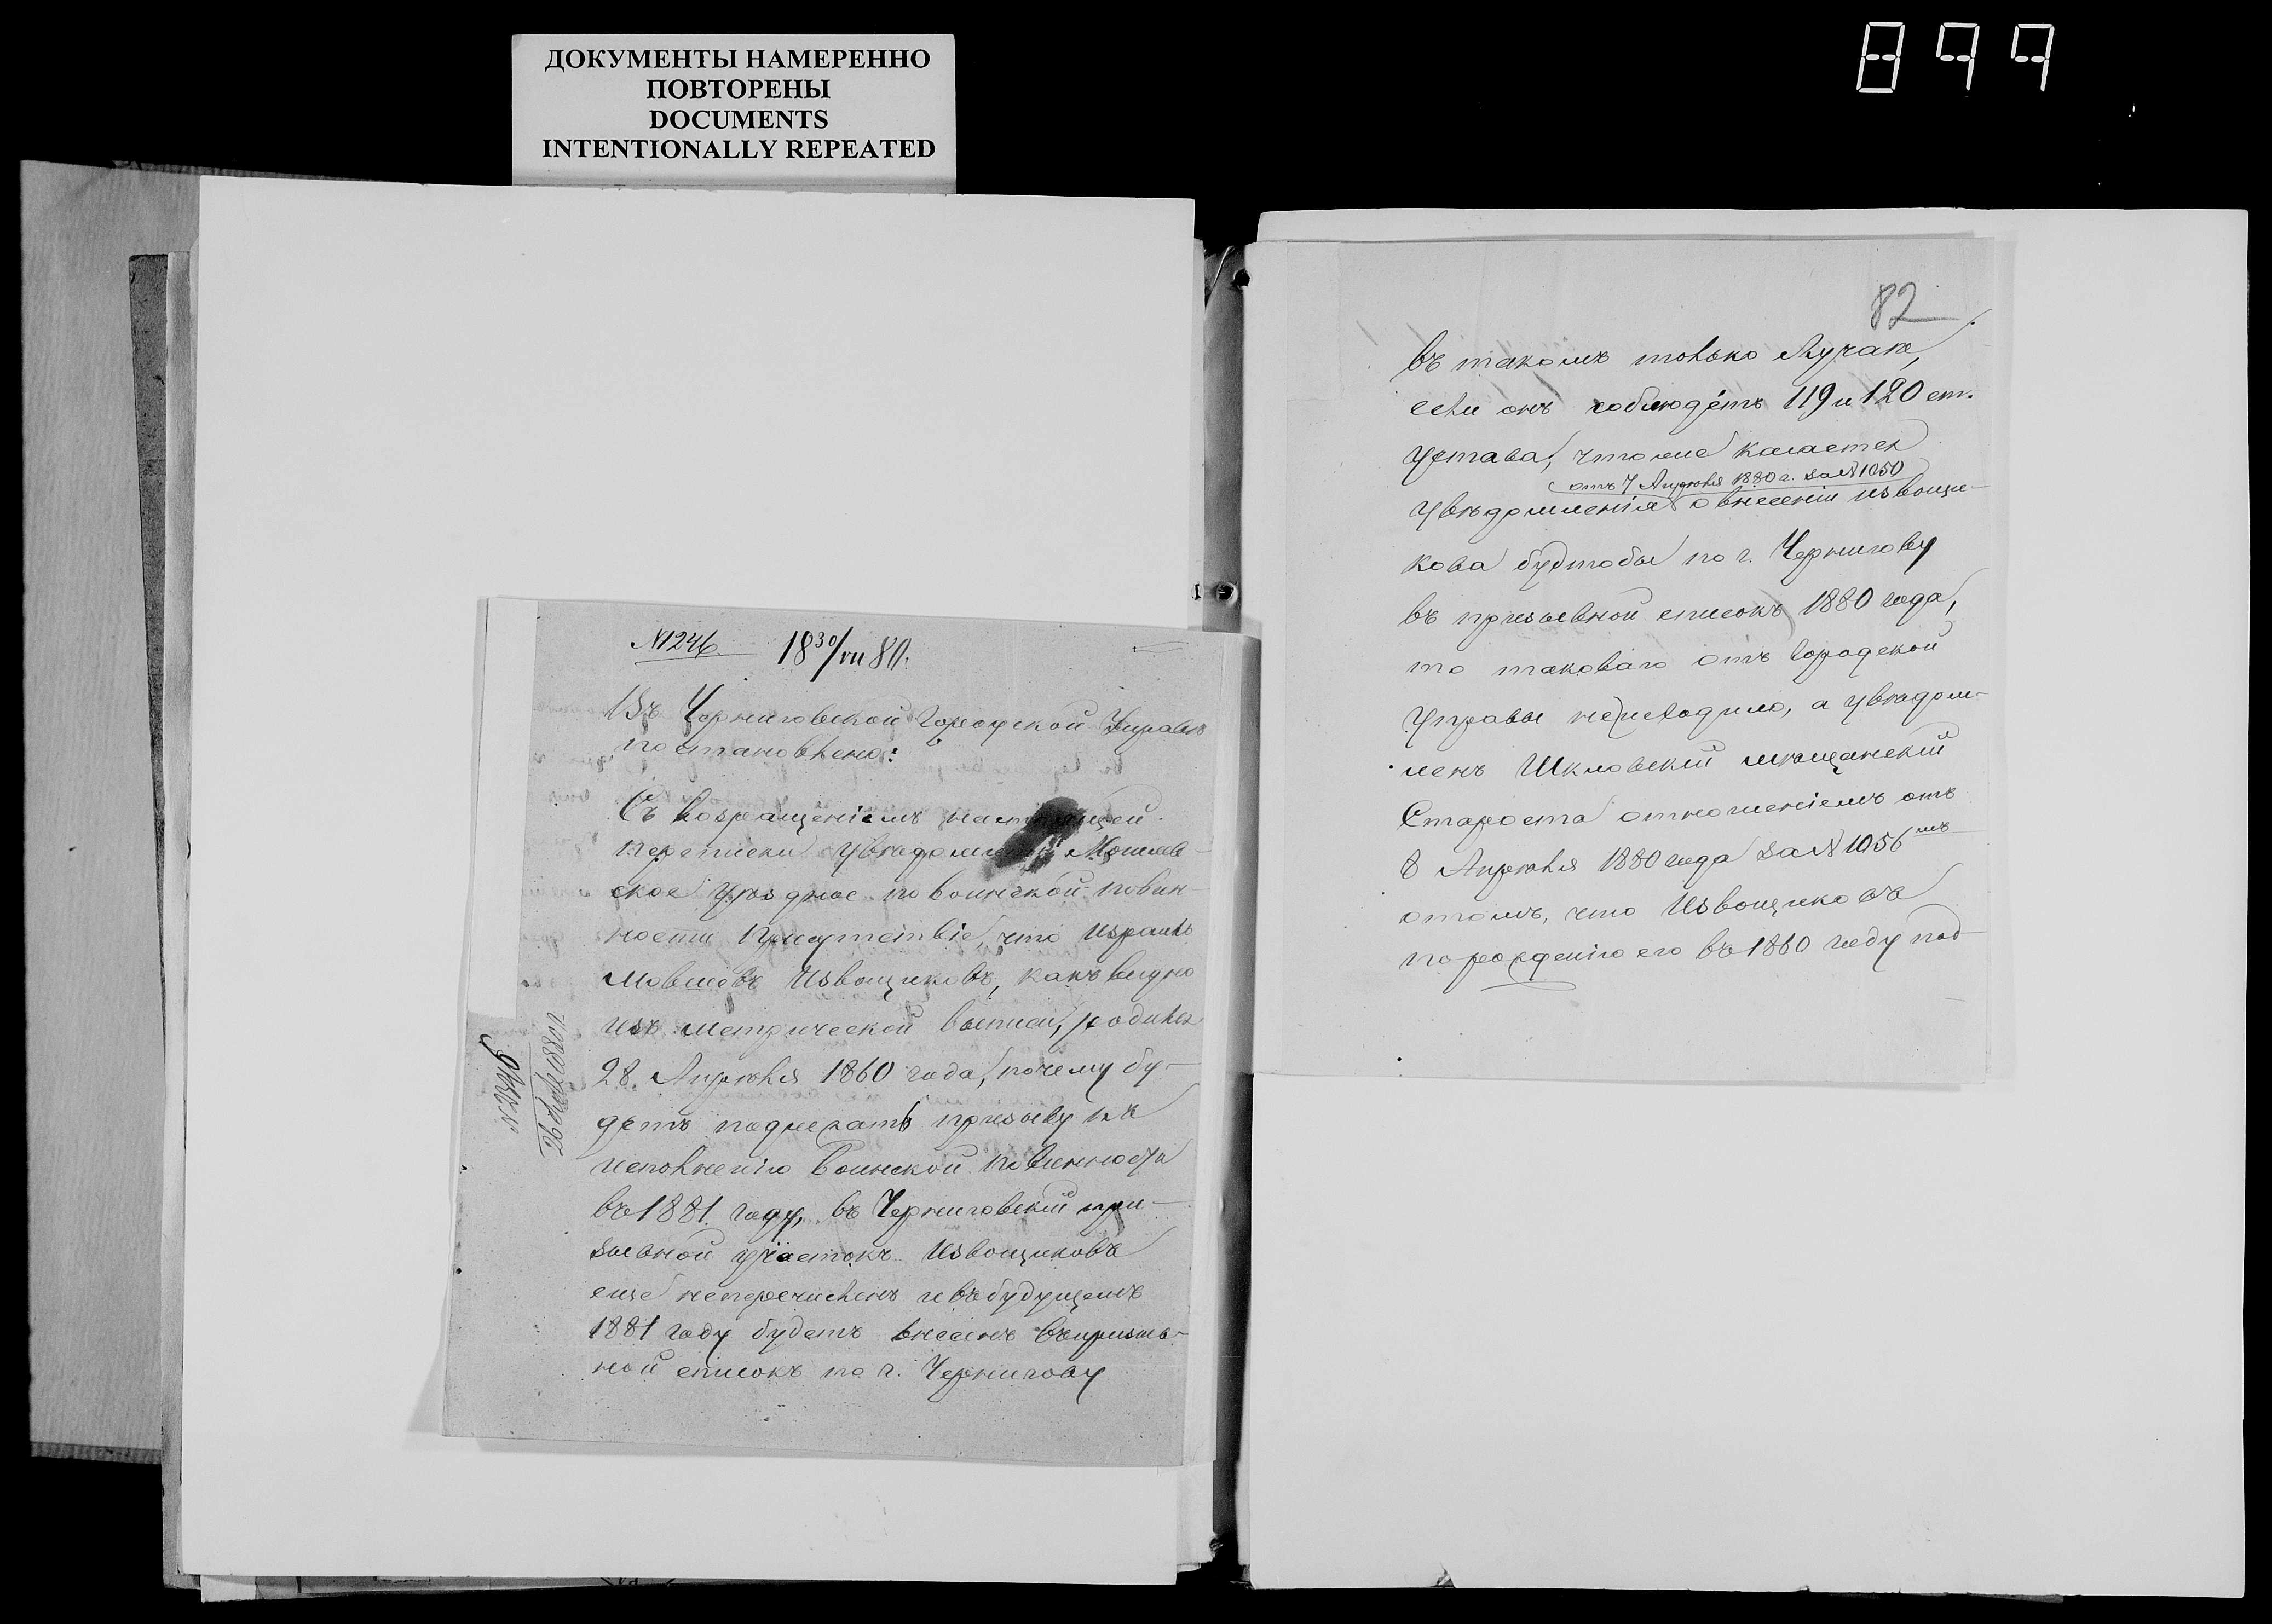 ДОКУМЕНТЫ НАМЕРЕННО
ПОВТОРЕНЫ
DOCUMENTS
INTENTIONALLY REPEATED
899
№1246. 18 30/VII 80.
Въ Черниговской Городской Управѣ
постановлено:
Съ возращеніемъ настоящей
переписки увѣдомить Могилев-
ское уѣздное по воинской повин-
ности Присутствіе, что Израиль
Мовшевъ Извощиковъ, какъ видно
изъ метрической выписи, родился
28 Апрѣля 1860 года, почему бу-
детъ подлежать призыву къ
исполненію воинской повинности
въ 1881 году, въ Черниговскій при-
зывной участокъ Извощиковъ
еще неперечисленъ и въ будущемъ
1881 году будетъ внесенъ въ призыв-
ной списокъ по г. Чернигову
№2349
26 1880 г.
82
въ такомъ только случаѣ,
если онъ соблюдетъ 119 и 120 ст.
Устава; что же касается
отъ 7 Апрѣля 1880 г. за №1050
увѣдомленія о внесеніи Извощи-
кова будтобы по г. Чернигову
въ призывной списокъ 1880 года,
то таковаго отъ Городской
Управы неисходило, а увѣдом-
ленъ Шкловскій мѣщанскій
Староста отношеніемъ отъ
8 Апрѣля 1880 года за №1056мъ
о томъ, что Извощиковъ
по рожденію его въ 1860 году под-